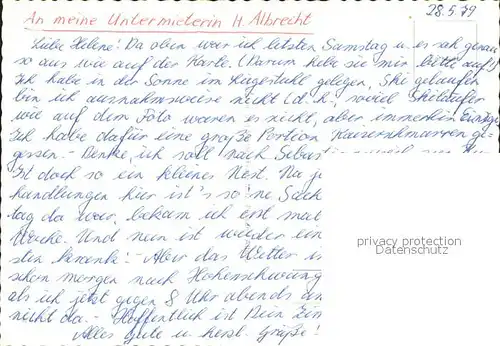 28.5.79
An meine Untermieterin H. Albrecht
Liebe Helene! Da oben war ich letzten Samstag u. es sah genau
so aus wie auf der Karte. (Darum hebe sie mir bitte auf!)
Ich habe in der Sonne im Liegestuhl gelegen, Ski gelaufen
bin ich ausnahmsweise nicht (d.h. soviel Skiläufer
wie auf dem Foto waren es nicht, aber immerhin einige.
Ich habe dafür eine große Portion Kaiserschmarren ge-
gessen. - Denkste, ich soll nach
Ist doch so ein kleines Nest. Na j
handlungen hier ist's so 'ne Sach
tag da war, bekam ich erst mal
Woche. Und nun ist wieder ein
sten - Aber das Wetter is
schon morgen nach Hohenschwang
als ich jetzt gegen 8 Uhr abends an
nicht da. - Hoffentlich ist Dein Zim
Alles Gute u. herzl. Grüße!
privacy protection
Datenschutz